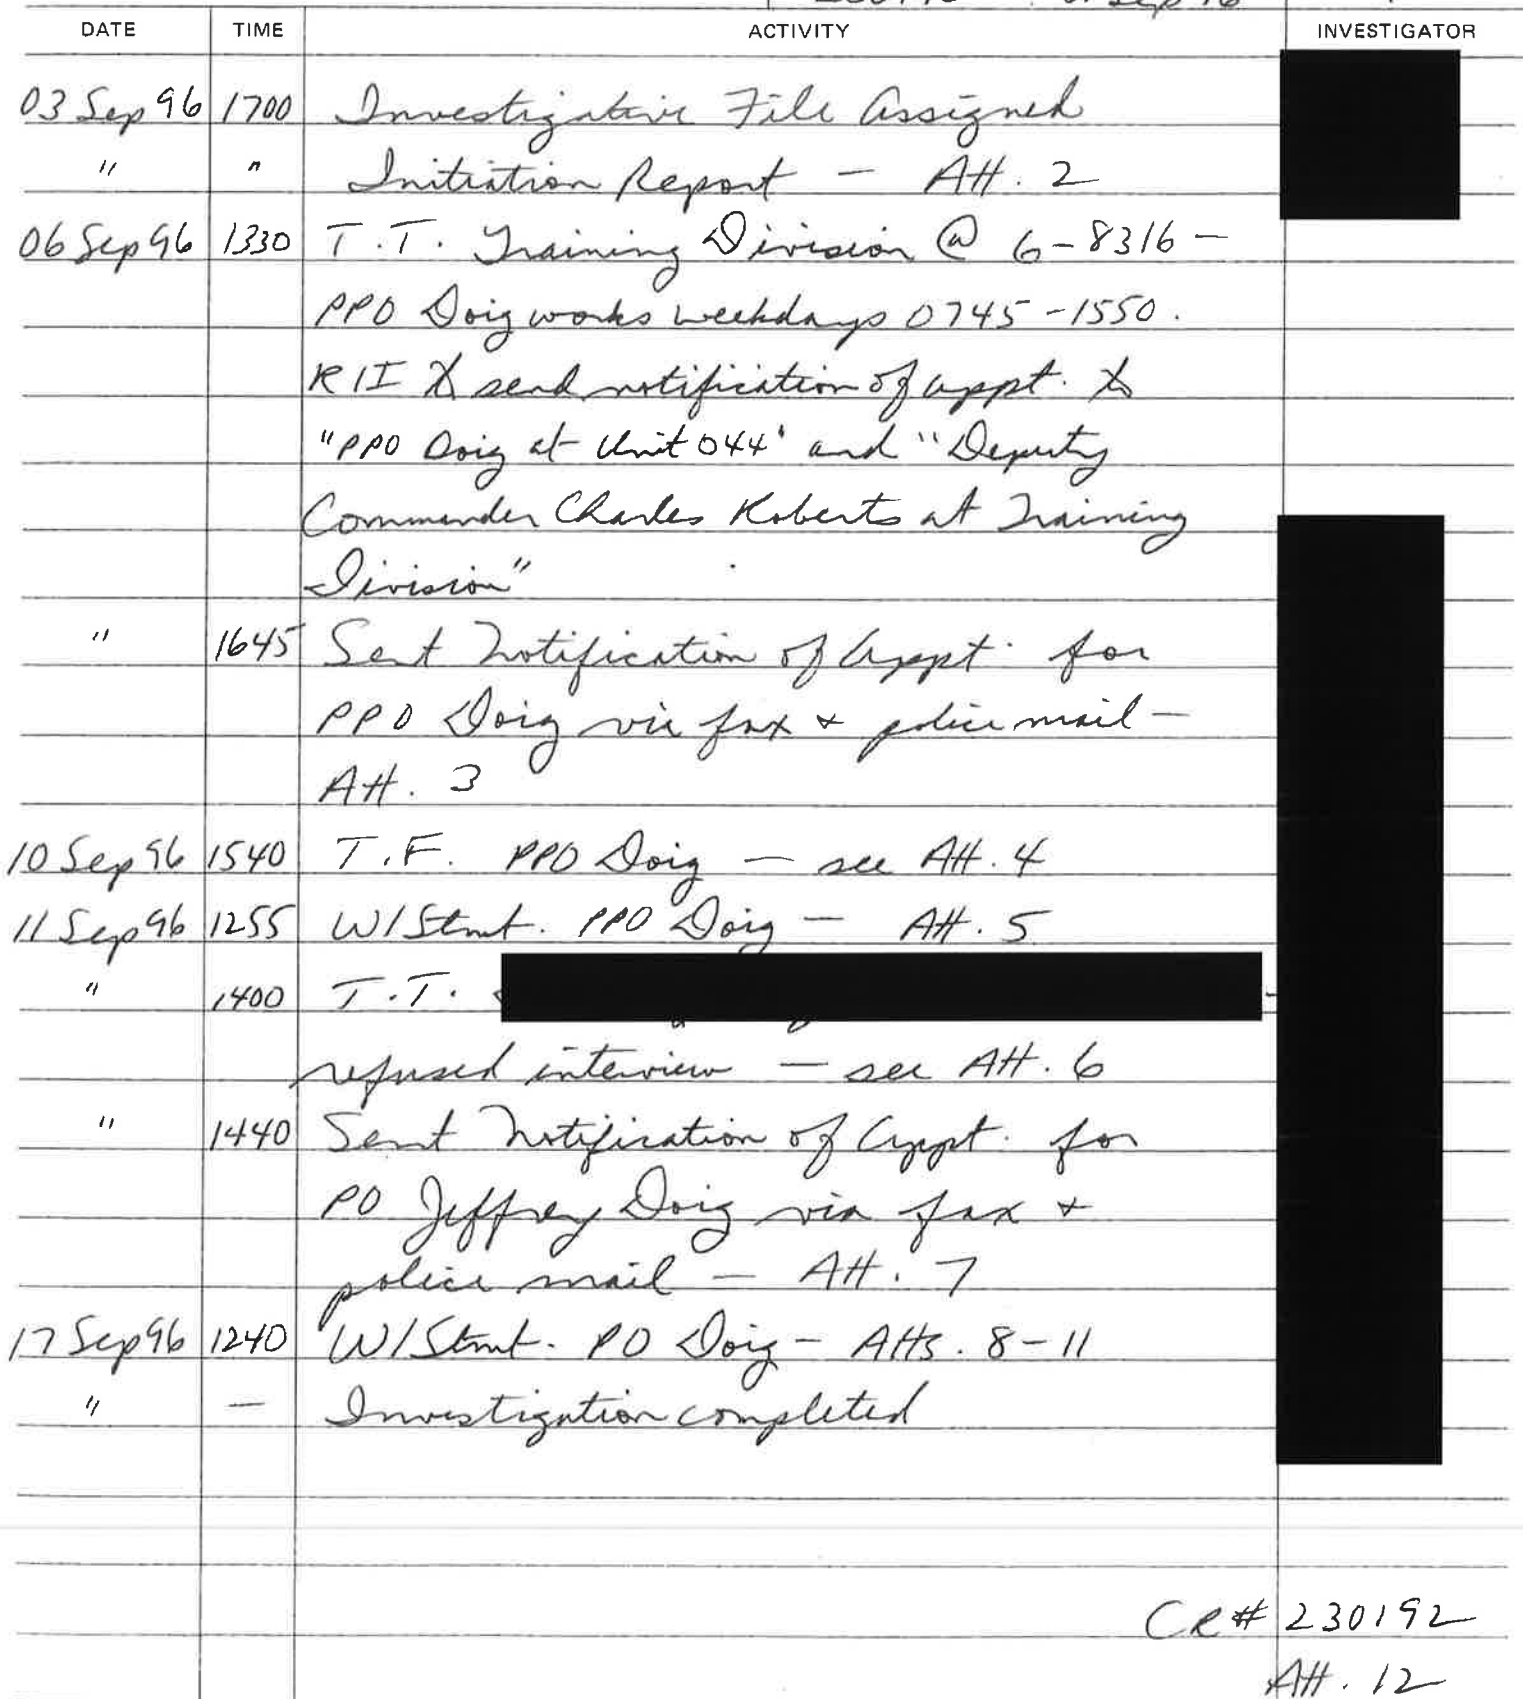 Sep 96
DATE TIME ACTIVITY INVESTIGATOR
03 Sep 96 1700 Investigative File Assigned
" " Initiation Report - Att. 2
06 Sep 96 1330 T.T. Training Division @ 6-8316 -
PPO Doig works weekdays 0745-1550.
RII to send notification of appt. to
"PPO Doig at Unit 044" and "Deputy
Commander Charles Roberts at Training
Division"
" 1645 Sent Notification of Appt. for
PPO Doig via fax + police mail -
Att. 3
10 Sep 96 1540 T.F. PPO Doig - see Att. 4
11 Sep 96 1255 W/Stmt. PPO Doig - Att. 5
" 1400 T.T. -
refused interview - see Att. 6
" 1440 Sent Notification of Appt. for
PO Jeffrey Doig via fax +
police mail - Att. 7
17 Sep 96 1240 W/Stmt. PO Doig - Atts. 8-11
" - Investigation completed
CR# 230192
Att. 12